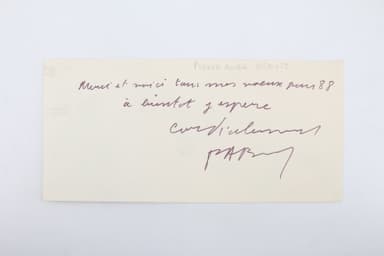 Merci et voici tous mes voeux pour 88
à bientot j'espere
Cordialement
PAB